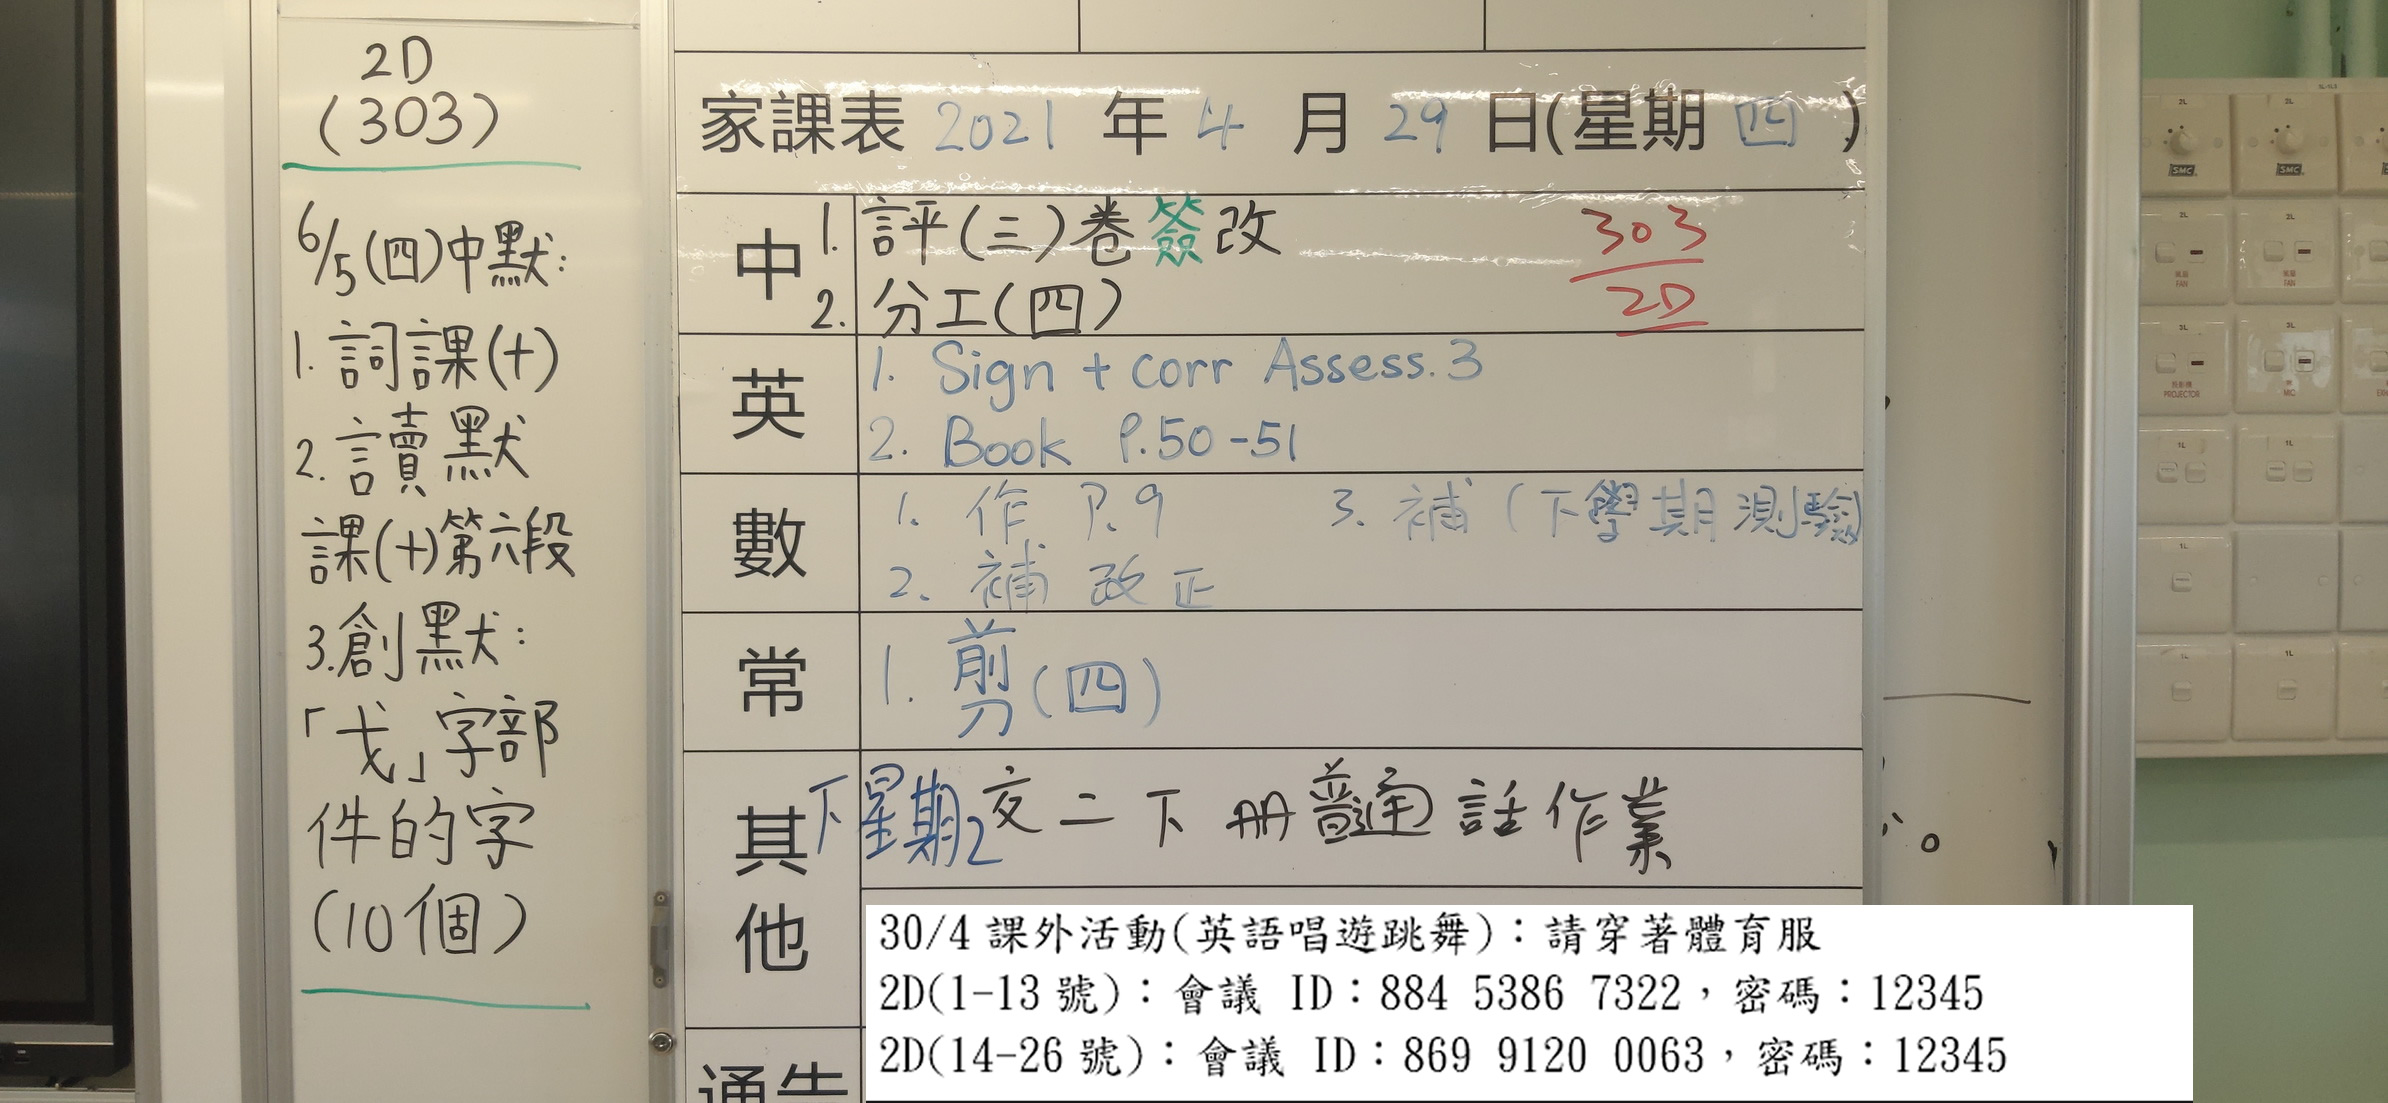 2D
(303)
6/5(四)中默:
1. 詞課(十)
2. 讀默
課(十)第六段
3.創默:
「戈」字部
件的字
(10個)
家課表 2021 年 4 月 29 日(星期 四 )
中
1. 評(三)卷簽改
2. 分工(四)
303
2D
英
1. Sign + corr Assess. 3
2. Book P.50-51
數
1. 作 P.9
2. 補 改正
3. 補 (下學期測驗)
常
1. 剪(四)
其他
下星期2交二下冊普通話作業
30/4 課外活動(英語唱遊跳舞):請穿著體育服
2D(1-13 號):會議 ID:884 5386 7322,密碼:12345
2D(14-26 號):會議 ID:869 9120 0063,密碼:12345
通告
2L
2L
SMC
SMC
2L
2L
風扇
FAN
風扇
FAN
3L
3L
投影機
PROJECTOR
MIC
1L
1L
1L
1L
1L